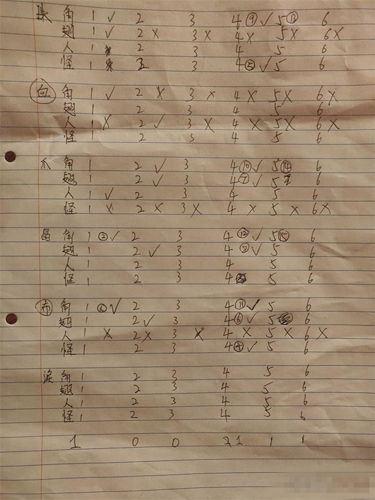 长 角 1 ✓ 2 3 4 ⑨ ✓ 5 ⑬ 6
翅 1 ✓ 2 × 3 × 4 × 5 × 6 ×
人 1 2 3 4 5 6
怪 1 2 3 4 ⑤ ✓ 5 6
白 角 1 ✓ 2 × 3 × 4 × 5 × 6 ×
翅 1 2 3 4 5 6
人 1 × 2 ✓ 3 × 4 × 5 × 6 ×
怪 1 2 3 4 5 6
爪 角 1 2 ✓ 3 4 ⑩ ✓ 5 ⑭ 6
翅 1 2 ✓ 3 4 ⑦ ✓ 5 6
人 1 ✓ 2 3 4 5 6
怪 1 × 2 × 3 × 4 × 5 × 6 ×
角 1 ③ ✓ 2 3 4 ⑫ ✓ 5 ⑮ 6
翅 1 2 ✓ 3 4 ✓ 5 6
人 1 2 3 4 5 6
怪 1 2 3 4 5 6
角 1 ✓ 2 3 4 ⑪ ✓ 5 6
翅 1 2 ✓ 3 4 ⑥ ✓ 5 6
人 1 × 2 × 3 × 4 × 5 × 6 ×
怪 1 2 3 4 ✓ 5 6
角 1 2 3 4 5 6
翅 1 2 3 4 5 6
人 1 2 3 4 5 6
怪 1 2 3 4 5 6
1 0 0 1 1 1